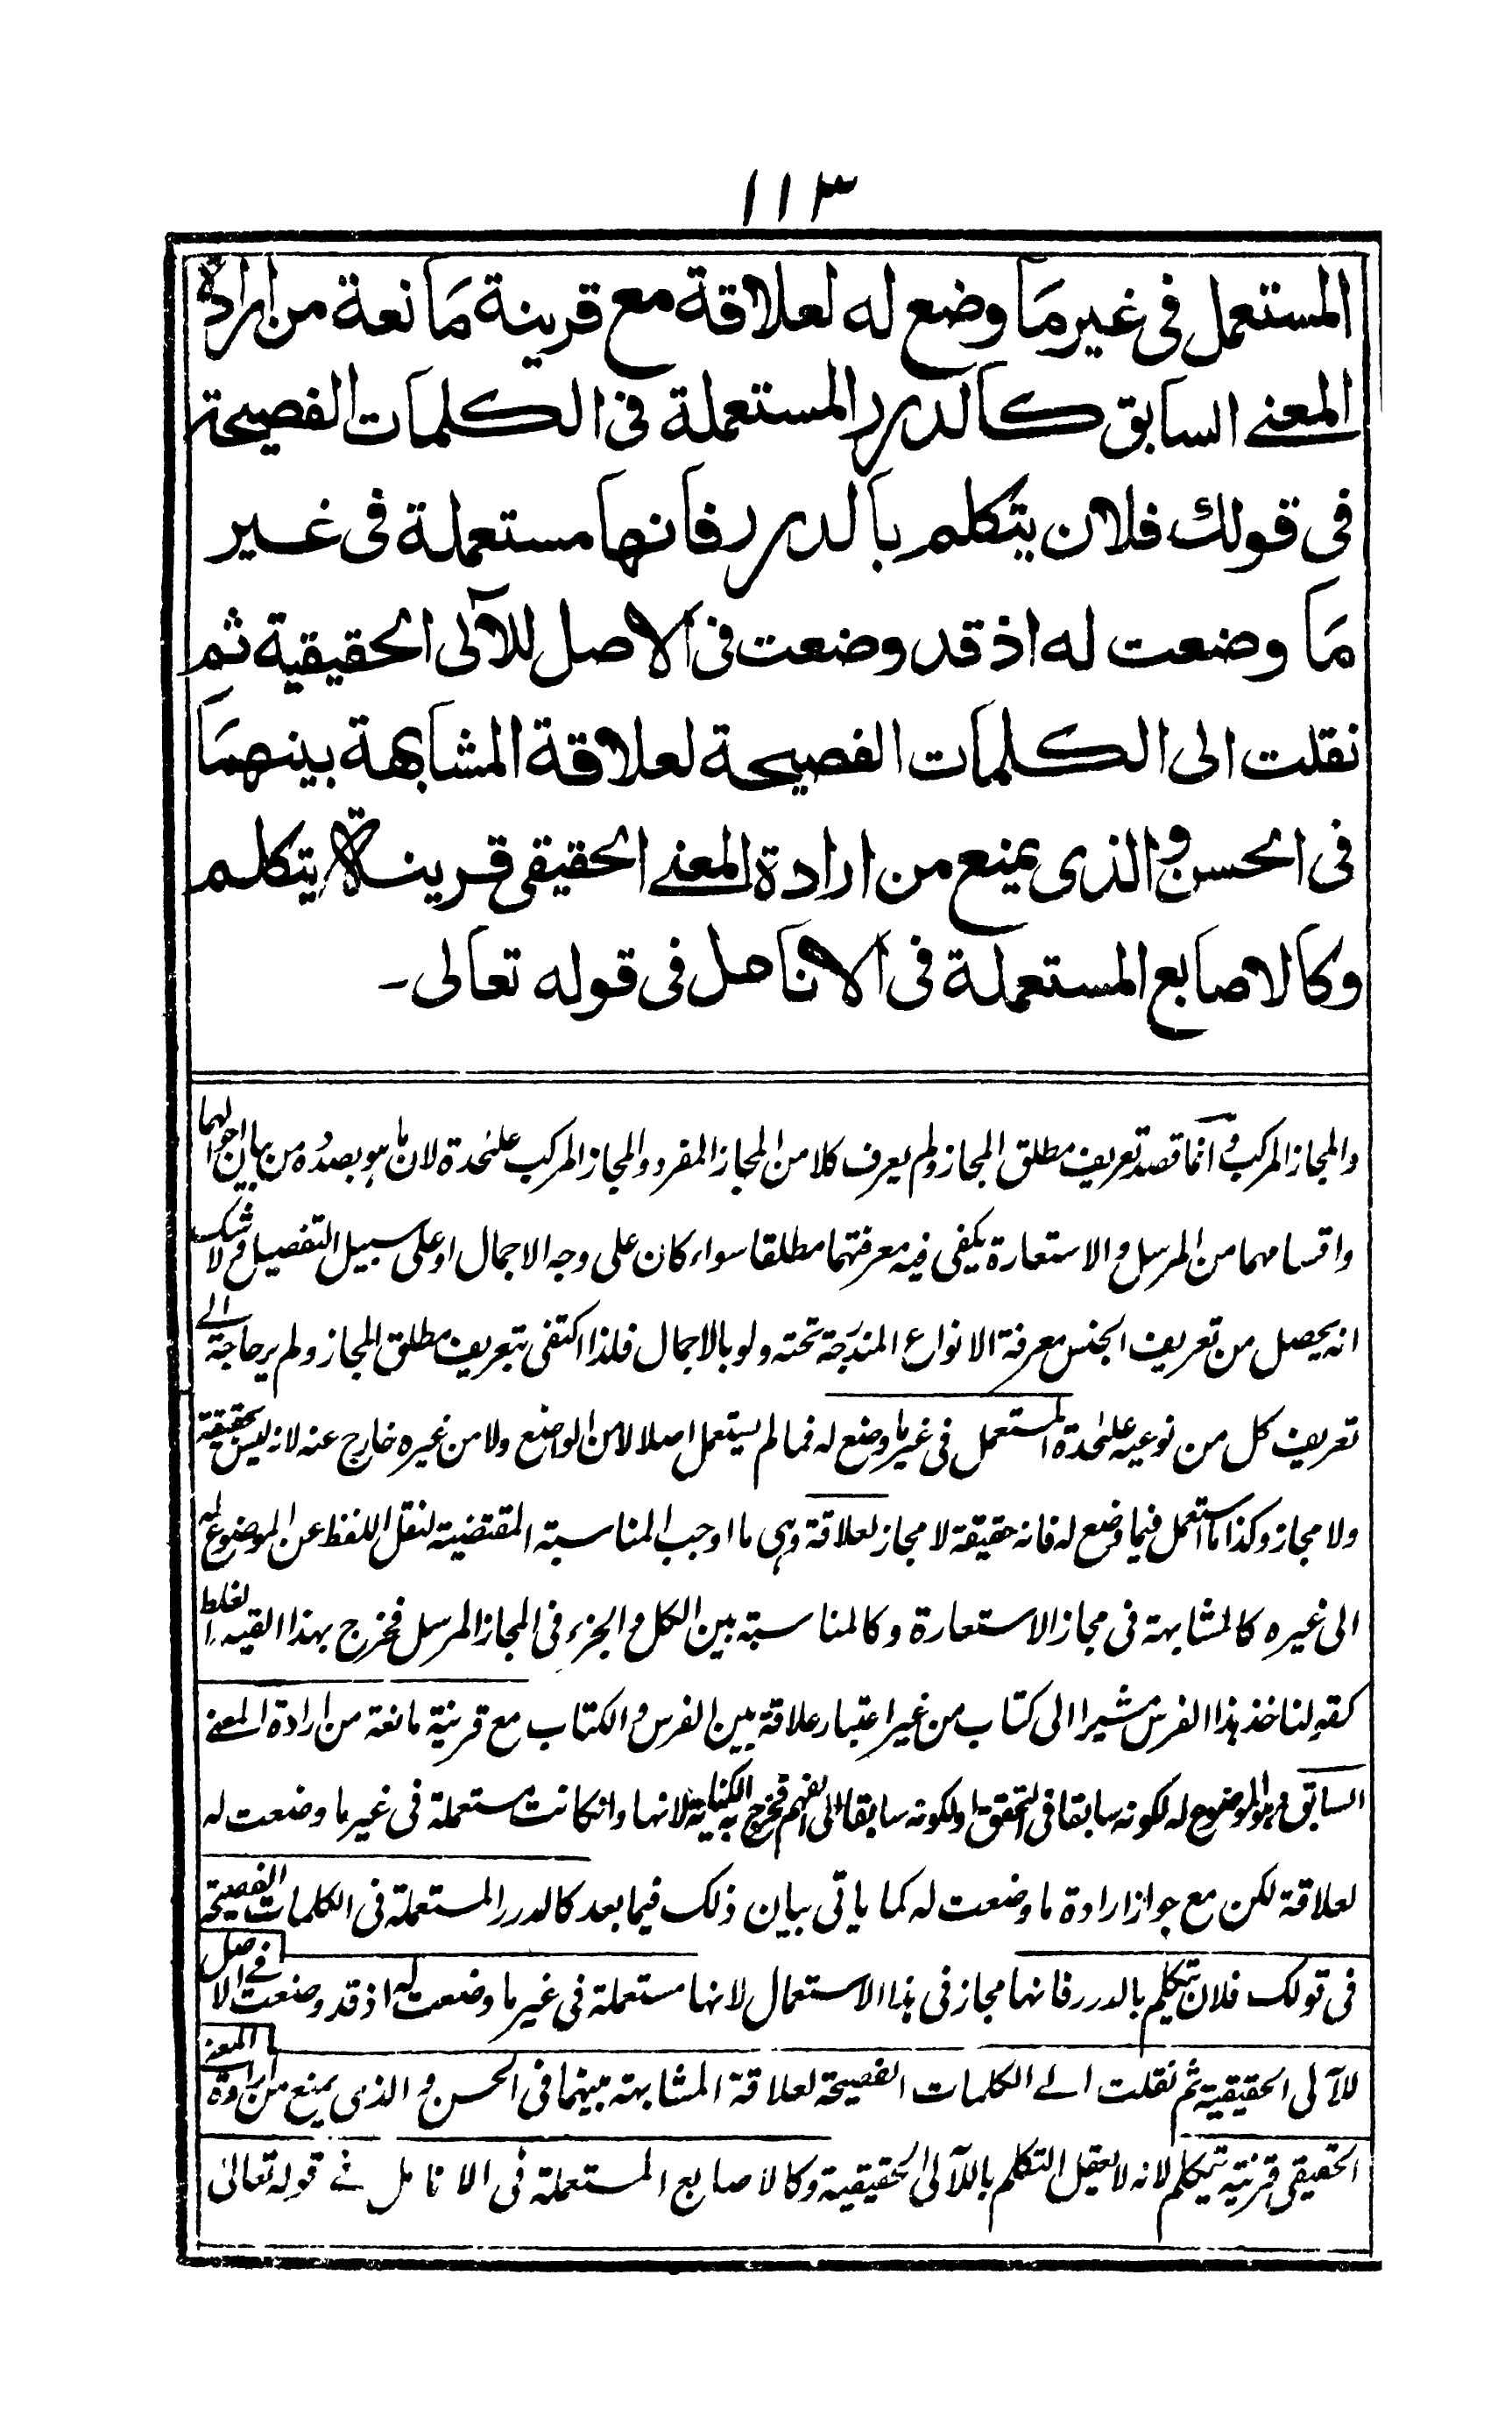 ١١٣
المستعمل فى غير ما وضع له لعلاقة مع قرينة مانعة من ارادة
المعنے السابق كالدرر المستعملة فى الكلمات الفصيحة
فى قولك فلان يتكلم بالدرر فانها مستعملة فى غير
ما وضعت له اذ قد وضعت فى الاصل للآلى الحقيقية ثم
نقلت الى الكلمات الفصيحة لعلاقة المشابهة بينهما
فى الحسن والذى يمنع من ارادة المعنے الحقيقى قرينة يتكلم
وكالاصابع المستعملة فى الانامل فى قوله تعالى -
والمجاز المركب وانما قصد تعريف مطلق المجاز ولم يعرف كلا من المجاز المفرد والمجاز المركب علىحدة لان ما هو بصدده من بيان احوالهما
واقسامهما من المرسل والاستعارة يكفى فيه معرفتهما مطلقا سواء كان على وجه الاجمال او على سبيل التفصيل ولا شك
انه يحصل من تعريف الجنس معرفة الانواع المندرجة تحته ولو بالاجمال فلذا اكتفى بتعريف مطلق المجاز ولم ير حاجة الے
تعريف كل من نوعيه علىحدة المستعمل فى غير ما وضع له فما لم يستعمل اصلا لا من الواضع ولا من غيره خارج عنه لانه ليس بحقيقة
ولا مجاز وكذا ما استعمل فيما وضع له فانه حقيقة لا مجاز لعلاقة وهى ما اوجب المناسبة المقتضية لنقل اللفظ عن الموضوع له
الى غيره كالمشابهة فى مجاز الاستعارة وكالمناسبة بين الكل والجزء فى المجاز المرسل فخرج بهذا القيد الغلط
كقولنا خذ هذا الفرس مشيرا الى كتاب من غير اعتبار علاقة بين الفرس والكتاب مع قرينة مانعة من ارادة المعنے
السابق وهو الموضوع له لكونه سابقا فى التحقق او لكونه سابقا الى الفهم فخرج به الكناية لانها وانكانت مستعملة فى غير ما وضعت له
لعلاقة لكن مع جواز ارادة ما وضعت له كما ياتى بيان ذلك فيما بعد كالدرر المستعملة فى الكلمات الفصيحة
فى قولك فلان يتكلم بالدرر فانها مجاز فى هذا الاستعمال لانها مستعملة فى غير ما وضعت له اذ قد وضعت فے الاصل
للآلى الحقيقية ثم نقلت الے الكلمات الفصيحة لعلاقة المشابهة بينهما فى الحسن والذى يمنع من ارادة المعنے
الحقيقى قرينة يتكلم لانه لا يعقل التكلم باللآلى الحقيقية وكالاصابع المستعملة فى الانامل فے قوله تعالىٰ